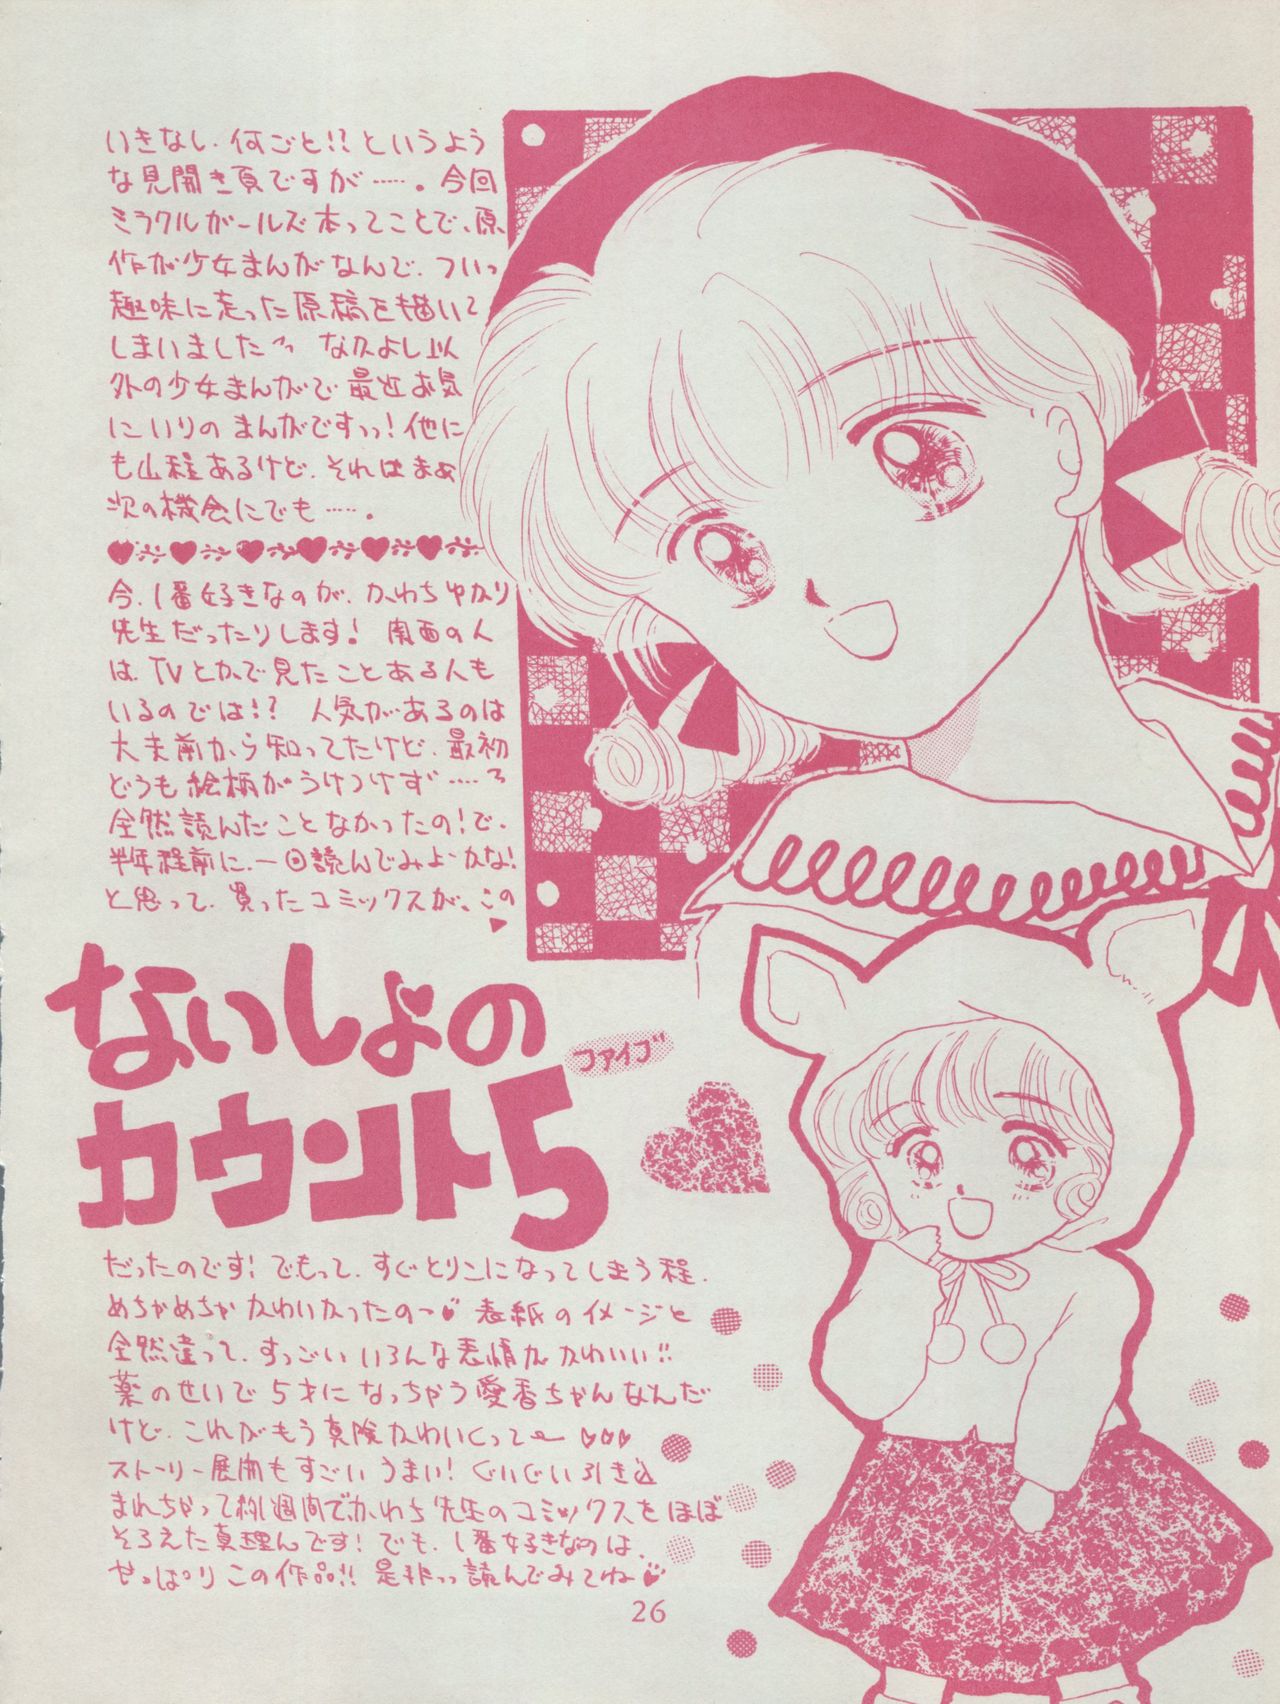 いきなし、何ごと!?というよう
な見開き頁ですが……。今回
ミラクルガールズ本ってことで、原
作が少女まんがなんで、ついっ
趣味に走った原稿を描いて
しまいました な久よし以
外の少女まんがで最近お気
にいりのまんがですっっ!他に
も山程あるけど、それはまぁ
次の機会にでも……。
今、1番好きなのが、かわちゆかり
先生だったりします! 関西の人
は、TVとかで見たことある人も
いるのでは!? 人気があるのは
大夫前から知ってたけど、最初
どうも絵柄がうけつけず……
全然読んだことなかったの!で、
半年程前に、一回読んでみよーかな!
と思って、買ったコミックスが、この
ないしょの
カウント5
ファイブ
だったのです! でもって、すぐとりこになってしまう程、
めちゃめちゃかわいかったの〜 表紙のイメージと
全然違って、すっごいいろんな表情がかわいい!!
薬のせいで5才になっちゃう愛香ちゃんなんだ
けど、これがもう真険かわいくって〜 ♡♡♡
ストーリー展開もすごいうまい! ぐいぐい引き込
まれちゃって約1週間でかわち先生のコミックスをほぼ
そろえた真理んです! でも、1番好きなのは、
やっぱりこの作品!! 是非っっ読んでみてね♡
26